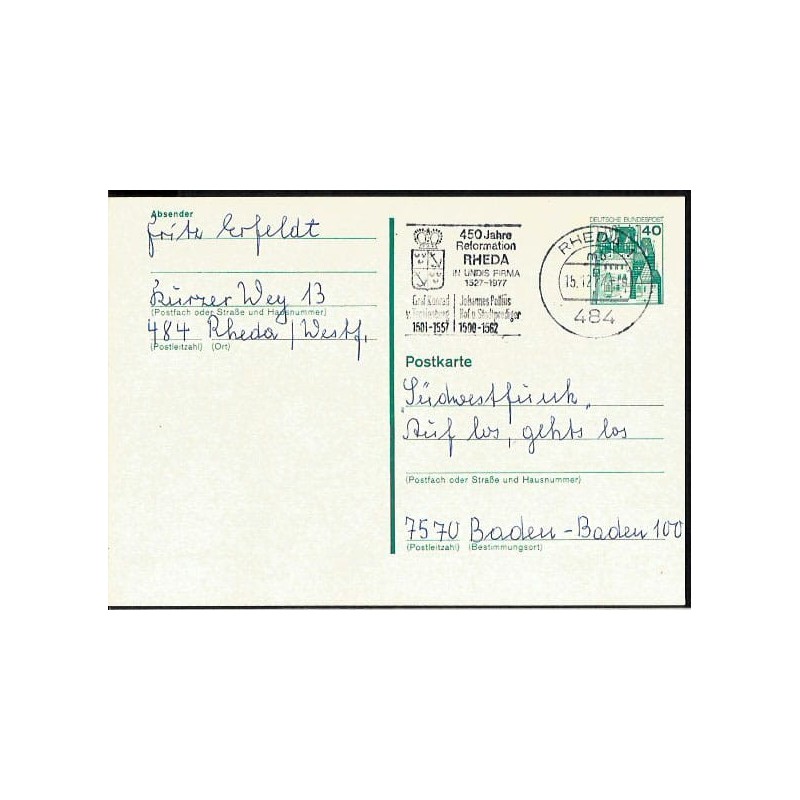 Absender
Fritz Erfeldt
Kurzer Weg 13
(Postfach oder Straße und Hausnummer)
484 Rheda/Westf,
(Postleitzahl) (Ort)
450 Jahre
Reformation
RHEDA
IN UNDIS FIRMA
1527-1977
Graf Konrad
1501-1557
Johannes Pollius
Hof u. Stadtprediger
1500-1562
RHEDA
15.12
484
DEUTSCHE BUNDESPOST
40
Postkarte
„Südwestfunk„
Auf los, gehts los
(Postfach oder Straße und Hausnummer)
7570 Baden-Baden 100
(Postleitzahl) (Bestimmungsort)